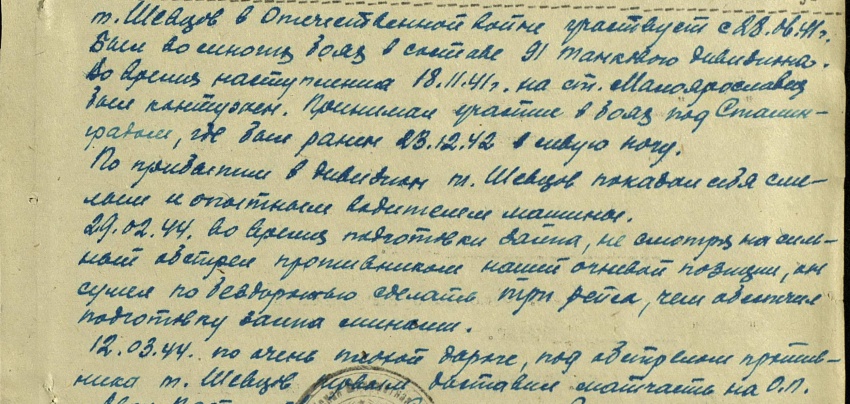 т. Шевцов в Отечественной войне участвует с 28.06.41г.
Был во многих боях в составе 91 танкового дивизиона.
Во время наступления 18.11.41г. на ст. Малоярославец
был контужен. Принимал участие в боях под Сталин-
градом, где был ранен 23.12.42 в левую ногу.
По прибытии в дивизион т. Шевцов показал себя сме-
лым и опытным водителем машины.
29.02.44. во время подготовки залпа, не смотря на силь-
ный обстрел противником нашей огневой позиции, он
сумел по бездорожью сделать три рейса, чем обеспечил
подготовку залпа минами.
12.03.44. по очень плохой дороге, под обстрелом против-
ника т. Шевцов первым доставил матчасть на О.П.